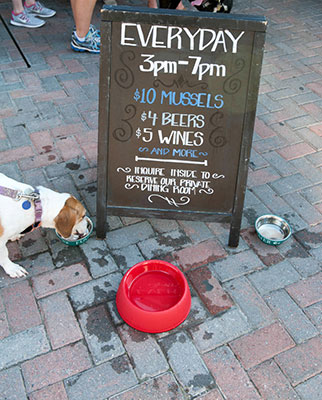 EVERYDAY
3pm-7pm
$10 MUSSELS
$4 BEERS
$5 WINES
AND MORE
INQUIRE INSIDE TO
RESERVE OUR PRIVATE
DINING ROOM